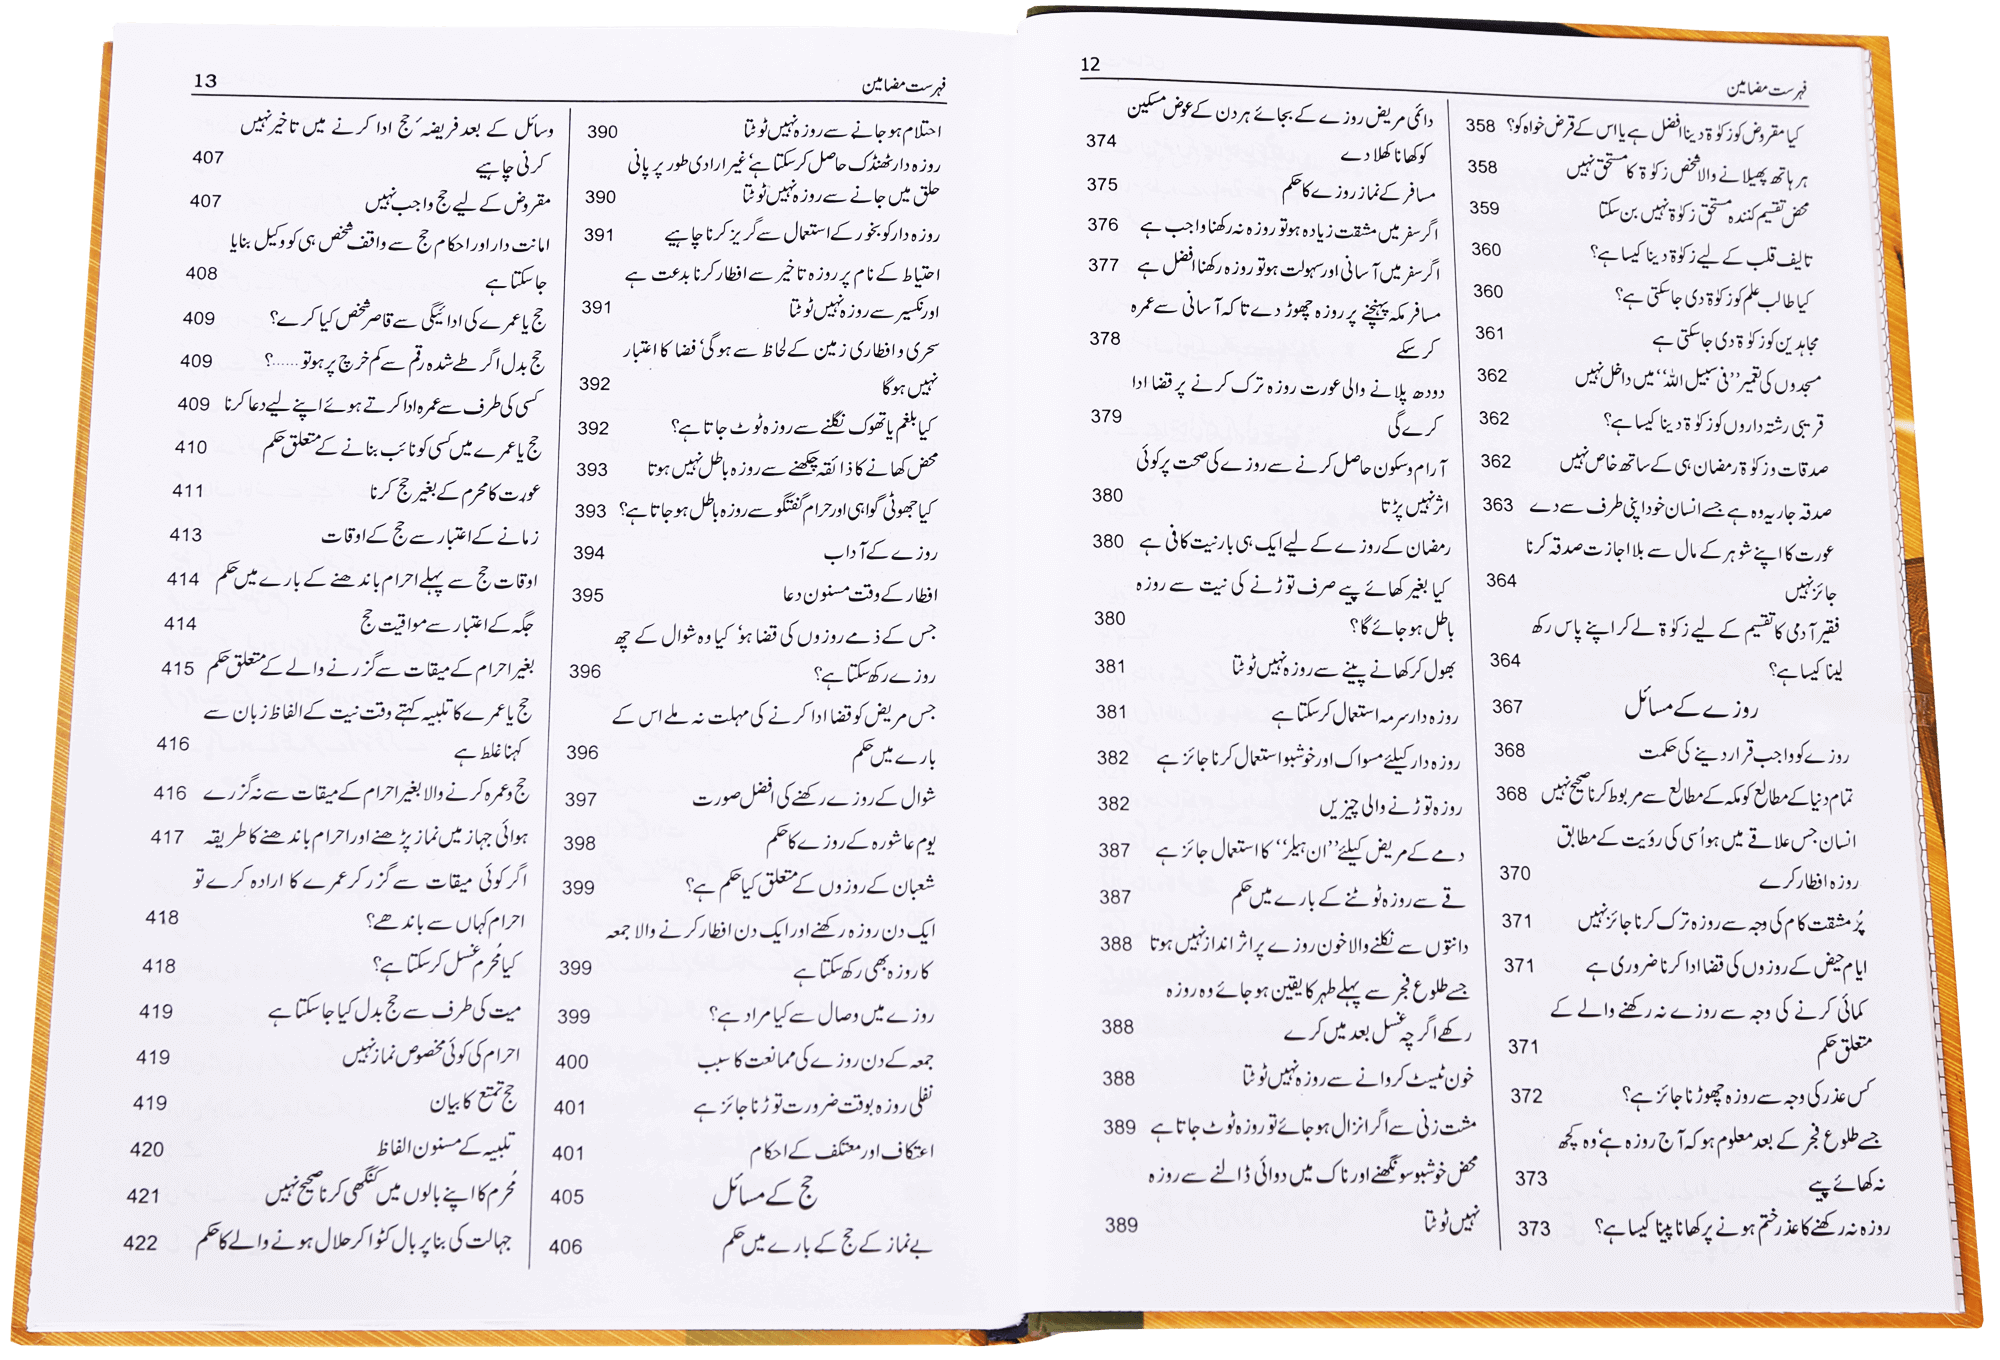 فہرست مضامین 12
کیا مقروض کو زکوٰۃ دینا افضل ہے یا اس کے قرض خواہ کو؟ 358
ہر ہاتھ پھیلانے والا شخص زکوٰۃ کا مستحق نہیں 358
محض تقسیم کنندہ مستحق زکوٰۃ نہیں بن سکتا 359
تالیف قلب کے لیے زکوٰۃ دینا کیسا ہے؟ 360
کیا طالب علم کو زکوٰۃ دی جا سکتی ہے؟ 360
مجاہدین کو زکوٰۃ دی جا سکتی ہے 361
مسجدوں کی تعمیر ’’فی سبیل اللہ‘‘ میں داخل نہیں 362
قریبی رشتہ داروں کو زکوٰۃ دینا کیسا ہے؟ 362
صدقات و زکوٰۃ رمضان ہی کے ساتھ خاص نہیں 362
صدقہ جاریہ وہ ہے جسے انسان خود اپنی طرف سے دے 363
عورت کا اپنے شوہر کے مال سے بلا اجازت صدقہ کرنا
جائز نہیں 364
فقیر آدمی کا تقسیم کے لیے زکوٰۃ لے کر اپنے پاس رکھ
لینا کیسا ہے؟ 364
روزے کے مسائل 367
روزے کو واجب قرار دینے کی حکمت 368
تمام دنیا کے مطالع کو مکہ کے مطالع سے مربوط کرنا صحیح نہیں 368
انسان جس علاقے میں ہو اُسی کی رؤیت کے مطابق
روزہ افطار کرے 370
پُر مشقت کام کی وجہ سے روزہ ترک کرنا جائز نہیں 371
ایام حیض کے روزوں کی قضا ادا کرنا ضروری ہے 371
کمائی کرنے کی وجہ سے روزے نہ رکھنے والے کے
متعلق حکم 371
کس عذر کی وجہ سے روزہ چھوڑنا جائز ہے؟ 372
جسے طلوع فجر کے بعد معلوم ہو کہ آج روزہ ہے‘ وہ کچھ
نہ کھائے پیے 373
روزہ نہ رکھنے کا عذر ختم ہونے پر کھانا پینا کیسا ہے؟ 373
دائمی مریض روزے کے بجائے ہر دن کے عوض مسکین
کو کھانا کھلا دے 374
مسافر کے نماز روزے کا حکم 375
اگر سفر میں مشقت زیادہ ہو تو روزہ نہ رکھنا واجب ہے 376
اگر سفر میں آسانی اور سہولت ہو تو روزہ رکھنا افضل ہے 377
مسافر مکہ پہنچنے پر روزہ چھوڑ دے تا کہ آسانی سے عمرہ
کر سکے 378
دودھ پلانے والی عورت روزہ ترک کرنے پر قضا ادا
کرے گی 379
آرام و سکون حاصل کرنے سے روزے کی صحت پر کوئی
اثر نہیں پڑتا 380
رمضان کے روزے کے لیے ایک ہی بار نیت کافی ہے 380
کیا بغیر کھائے پیے صرف توڑنے کی نیت سے روزہ
باطل ہو جائے گا؟ 380
بھول کر کھانے پینے سے روزہ نہیں ٹوٹتا 381
روزہ دار سرمہ استعمال کر سکتا ہے 381
روزہ دار کیلئے مسواک اور خوشبو استعمال کرنا جائز ہے 382
روزہ توڑنے والی چیزیں 382
دمے کے مریض کیلئے ’’ان ہیلر‘‘ کا استعمال جائز ہے 387
قے سے روزہ ٹوٹنے کے بارے میں حکم 387
دانتوں سے نکلنے والا خون روزے پر اثر انداز نہیں ہوتا 388
جسے طلوع فجر سے پہلے طہر کا یقین ہو جائے وہ روزہ
رکھے اگرچہ غسل بعد میں کرے 388
خون ٹیسٹ کروانے سے روزہ نہیں ٹوٹتا 388
مشت زنی سے اگر انزال ہو جائے تو روزہ ٹوٹ جاتا ہے 389
محض خوشبو سونگھنے اور ناک میں دوائی ڈالنے سے روزہ
نہیں ٹوٹتا 389
فہرست مضامین 13
احتلام ہو جانے سے روزہ نہیں ٹوٹتا 390
روزہ دار ٹھنڈک حاصل کر سکتا ہے‘ غیر ارادی طور پر پانی
حلق میں جانے سے روزہ نہیں ٹوٹتا 390
روزہ دار کو بخور کے استعمال سے گریز کرنا چاہیے 391
احتیاط کے نام پر روزہ تاخیر سے افطار کرنا بدعت ہے
اور نکسیر سے روزہ نہیں ٹوٹتا 391
سحری و افطاری زمین کے لحاظ سے ہو گی‘ فضا کا اعتبار
نہیں ہوگا 392
کیا بلغم یا تھوک نگلنے سے روزہ ٹوٹ جاتا ہے؟ 392
محض کھانے کا ذائقہ چکھنے سے روزہ باطل نہیں ہوتا 393
کیا جھوٹی گواہی اور حرام گفتگو سے روزہ باطل ہو جاتا ہے؟ 393
روزے کے آداب 394
افطار کے وقت مسنون دعا 395
جس کے ذمے روزوں کی قضا ہو‘ کیا وہ شوال کے چھ
روزے رکھ سکتا ہے؟ 396
جس مریض کو قضا ادا کرنے کی مہلت نہ ملے اس کے
بارے میں حکم 396
شوال کے روزے رکھنے کی افضل صورت 397
یوم عاشورہ کے روزے کا حکم 398
شعبان کے روزوں کے متعلق کیا حکم ہے؟ 399
ایک دن روزہ رکھنے اور ایک دن افطار کرنے والا جمعہ
کا روزہ بھی رکھ سکتا ہے 399
روزے میں وصال سے کیا مراد ہے؟ 399
جمعہ کے دن روزے کی ممانعت کا سبب 400
نفلی روزہ بوقت ضرورت توڑنا جائز ہے 401
اعتکاف اور معتکف کے احکام 401
حج کے مسائل 405
بے نماز کے حج کے بارے میں حکم 406
وسائل کے بعد فریضۂ حج ادا کرنے میں تاخیر نہیں
کرنی چاہیے 407
مقروض کے لیے حج واجب نہیں 407
امانت دار اور احکام حج سے واقف شخص ہی کو وکیل بنایا
جا سکتا ہے 408
حج یا عمرے کی ادائیگی سے قاصر شخص کیا کرے؟ 409
حج بدل اگر طے شدہ رقم سے کم خرچ پر ہو تو......؟ 409
کسی کی طرف سے عمرہ ادا کرتے ہوئے اپنے لیے دعا کرنا 409
حج یا عمرے میں کسی کو نائب بنانے کے متعلق حکم 410
عورت کا محرم کے بغیر حج کرنا 411
زمانے کے اعتبار سے حج کے اوقات 413
اوقات حج سے پہلے احرام باندھنے کے بارے میں حکم 414
جگہ کے اعتبار سے مواقیت حج 414
بغیر احرام کے میقات سے گزرنے والے کے متعلق حکم 415
حج یا عمرے کا تلبیہ کہتے وقت نیت کے الفاظ زبان سے
کہنا غلط ہے 416
حج و عمرہ کرنے والا بغیر احرام کے میقات سے نہ گزرے 416
ہوائی جہاز میں نماز پڑھنے اور احرام باندھنے کا طریقہ 417
اگر کوئی میقات سے گزر کر عمرے کا ارادہ کرے تو
احرام کہاں سے باندھے؟ 418
کیا مُحرم غسل کر سکتا ہے؟ 418
میت کی طرف سے حج بدل کیا جا سکتا ہے 419
احرام کی کوئی مخصوص نماز نہیں 419
حج تمتع کا بیان 419
تلبیہ کے مسنون الفاظ 420
مُحرم کا اپنے بالوں میں کنگھی کرنا صحیح نہیں 421
جہالت کی بنا پر بال کٹوا کر حلال ہونے والے کا حکم 422